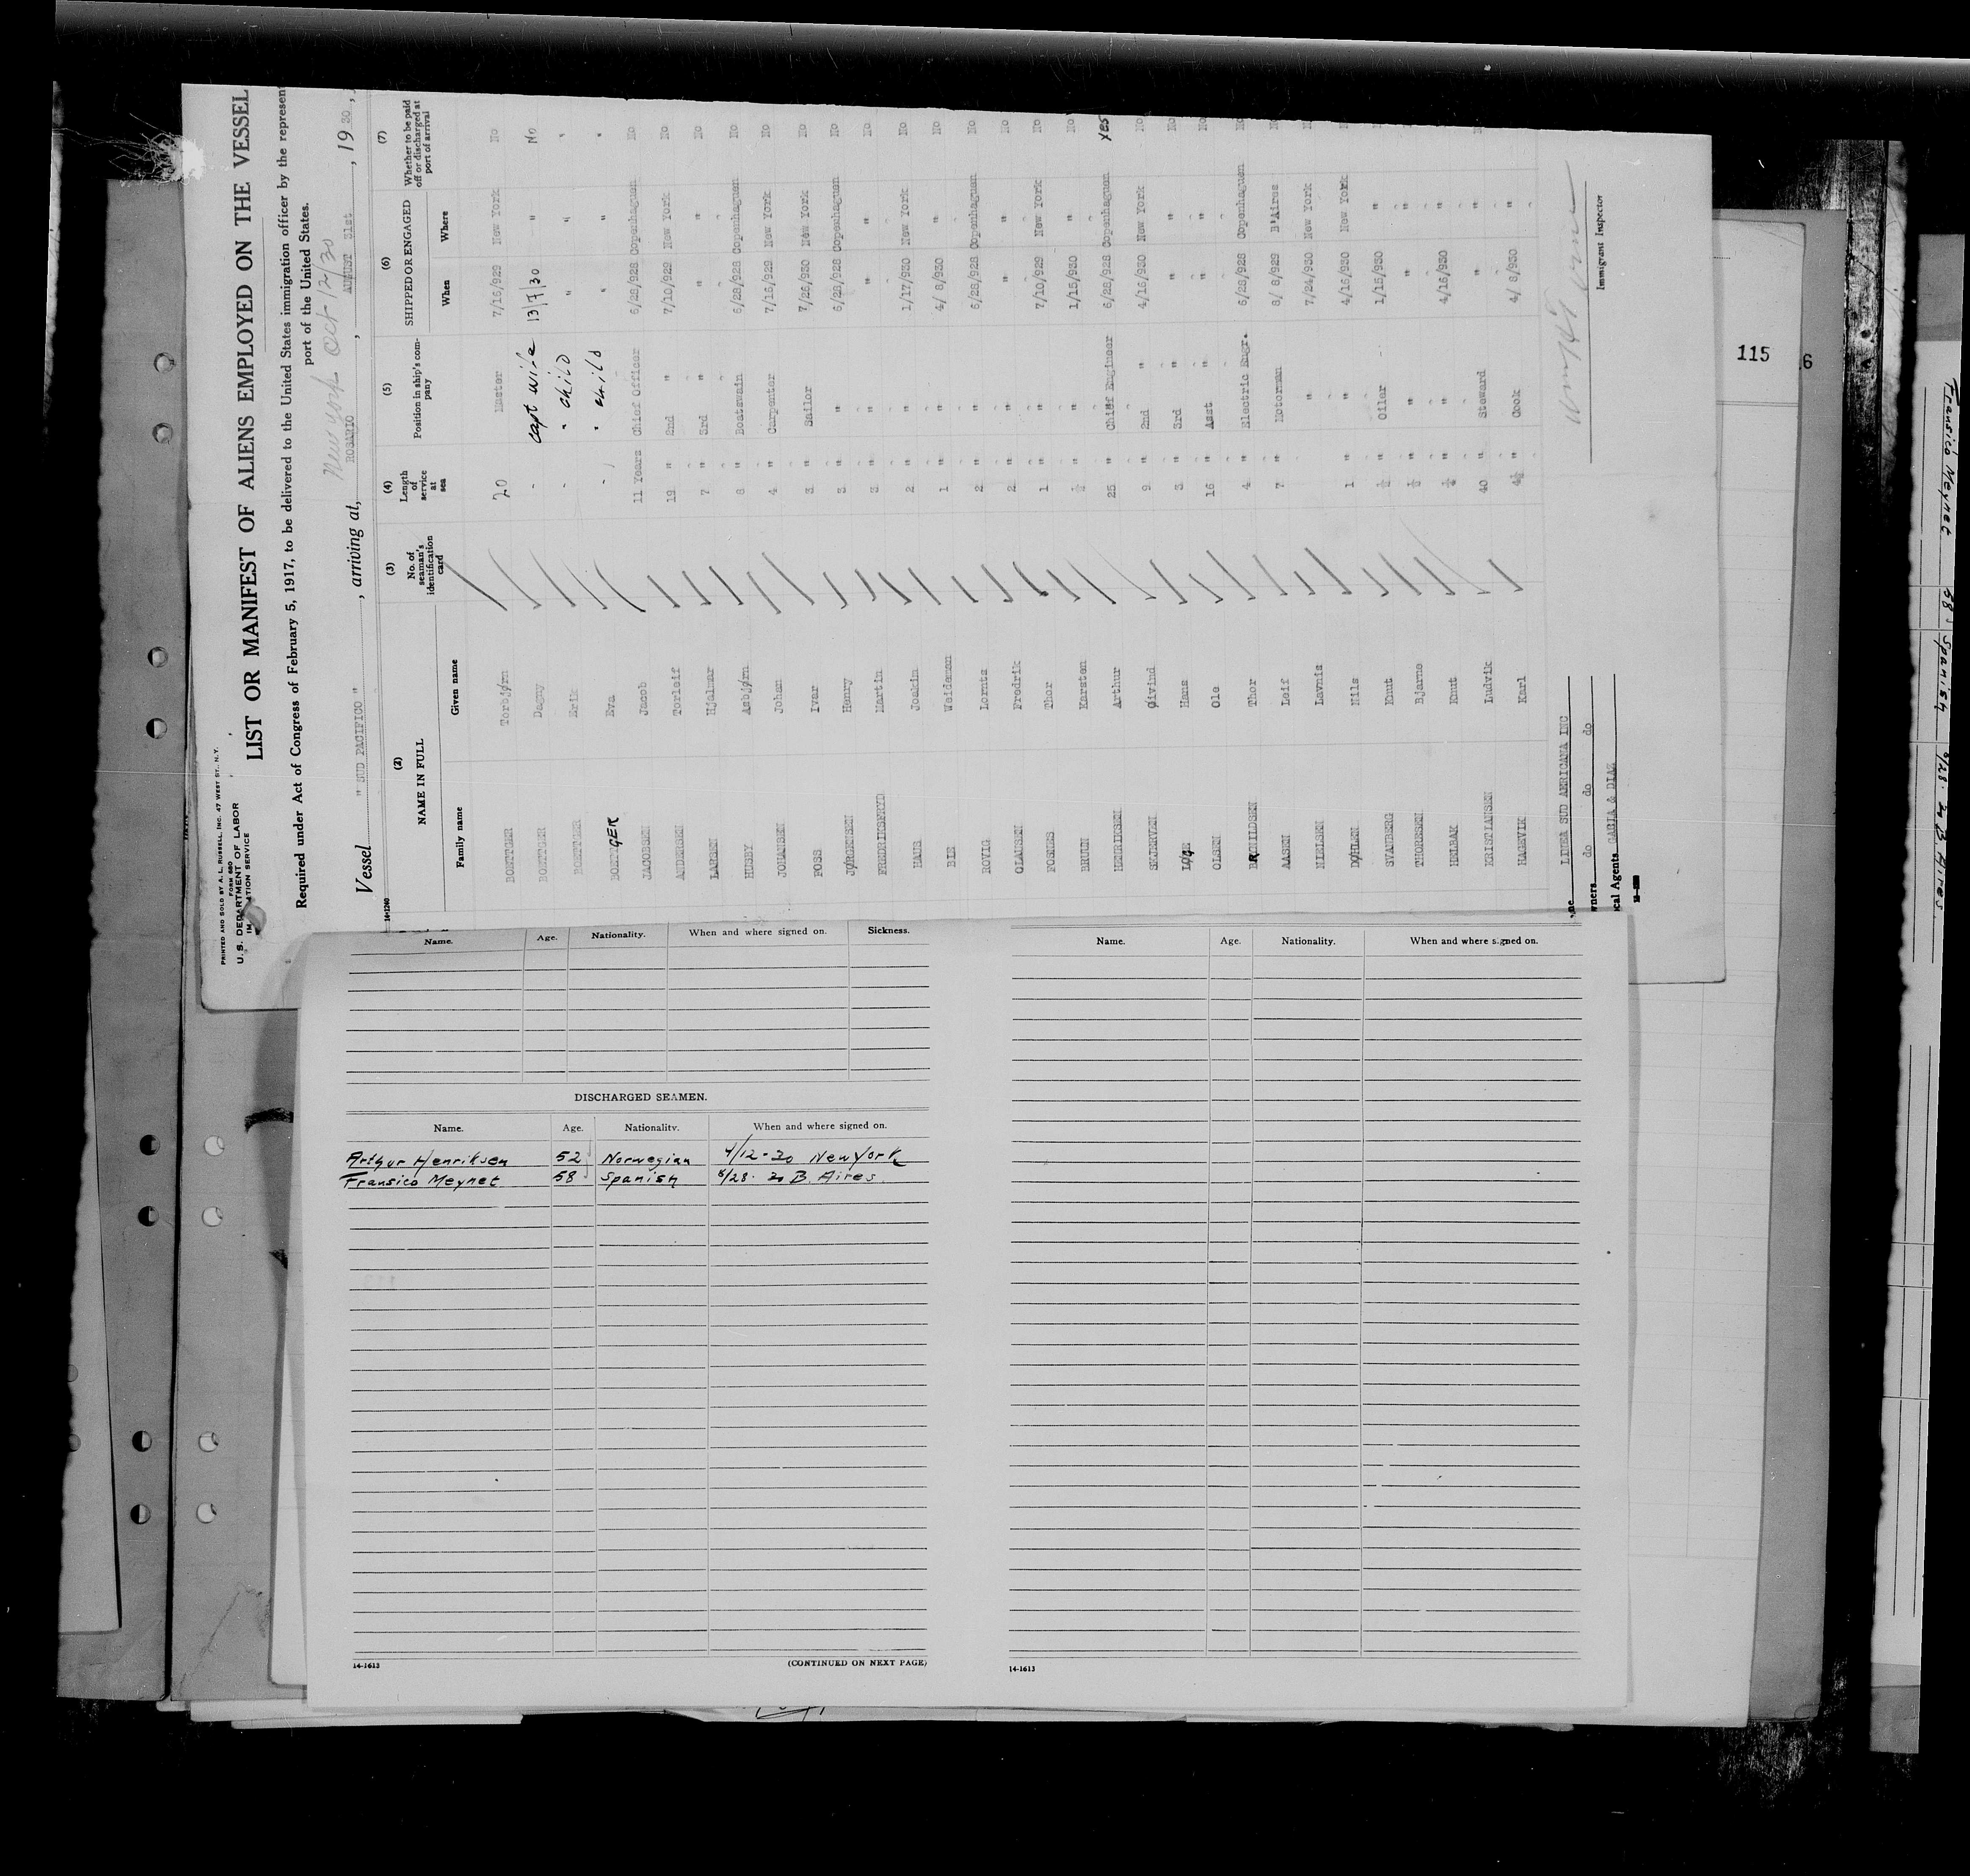 PRINTED AND SOLD BY A. L. RUSSELL, INC. 47 WEST ST., N.Y.
FORM 680
U. S. DEPARTMENT OF LABOR
IMMIGRATION SERVICE
LIST OR MANIFEST OF ALIENS EMPLOYED ON THE VESSEL
Required under Act of Congress of February 5, 1917, to be delivered to the United States immigration officer by the represen
port of the United States.
New York Oct 12/30
Vessel " SUD PACIFICO " , arriving at, ROSARIO , AUGUST 31st , 19 30,
14-1240
(2) (3) (4) (5) (6) (7)
NAME IN FULL No. of seaman's identification card Length of service at sea Position in ship's company SHIPPED OR ENGAGED Whether to be paid off or discharged at port of arrival
Family name Given name When Where
BOETTGER Torbjørn 20 Master 7/16/929 New York No
BOETTGER Dagny - capt wife 13/7/30 " No
BOETTGER Erik - " child " " "
BOETTGER Eva - " child " " "
JACOBSEN Jacob 11 Years Chief Officer 6/28/928 Copenhaguen No
ANDERSEN Torleif 19 " 2nd " 7/10/929 New York No
LARSEN Hjalmar 7 " 3rd " " " No
HUSBY Asbjørn 8 " Boatswain 6/28/928 Copenhaguen No
JOHANSEN Johan 4 " Carpenter 7/16/929 New York No
FOSS Ivar 3 " Sailor 7/26/930 New York No
JØRGENSEN Henry 3 " " 6/28/928 Copenhaguen No
FREDRIKSFRYD Martin 3 " " " " No
HAUS Joakim 2 " " 1/17/930 New York No
BIE Weideman 1 " " 4/ 8/930 " No
ROVIG Lornts 2 " " 6/28/928 Copenhaguen No
CLAUSEN Fredrik 2 " " " " No
FOSNES Thor 1 " " 7/10/929 New York No
BRUUN Karsten ½ " " 1/15/930 " No
HEIRIKSEN Arthur 25 " Chief Engineer 6/28/928 Copenhaguen Yes
SKJERVEN Øivind 9 " 2nd " 4/16/930 New York No
Hans 3 " 3rd " " " No
OLSEN Ole 16 " Asst " " " No
BRNHILDSEN Thor 4 " Electric Engr. 6/28/928 Copenhaguen No
AASEN Leif 7 " Motorman 8/ 8/929 B'Aires No
NIELSEN Lavnis " 7/24/930 New York No
DØHLEN Nils 1 " " 4/16/930 New York
SVANBERG Knut ½ " Oiler 1/15/930 "
THORESEN Bjarne ½ " " " "
HEILBAK Knut ½ " " 4/16/930 "
KRISTIANSEN Ludvik 40 " Steward " "
HAGEVIK Karl 4½ " Cook 4/ 8/930 "
LINEA SUD AMERICANA INC
wners do do do
cal Agents GARIA & DIAZ
Immigrant Inspector
115
6
Name. Age. Nationality. When and where signed on. Sickness.
DISCHARGED SEAMEN.
Name. Age. Nationality. When and where signed on.
Arthur Henriksen 52 Norwegian 4/12-30 New York
Fransico Meynet 58 Spanish 8/28. 30 B. Aires
14-1613 (CONTINUED ON NEXT PAGE)
Name. Age. Nationality. When and where signed on.
14-1613
Fransico Meynet 58 Spanish 8/28. 30 B. Aires